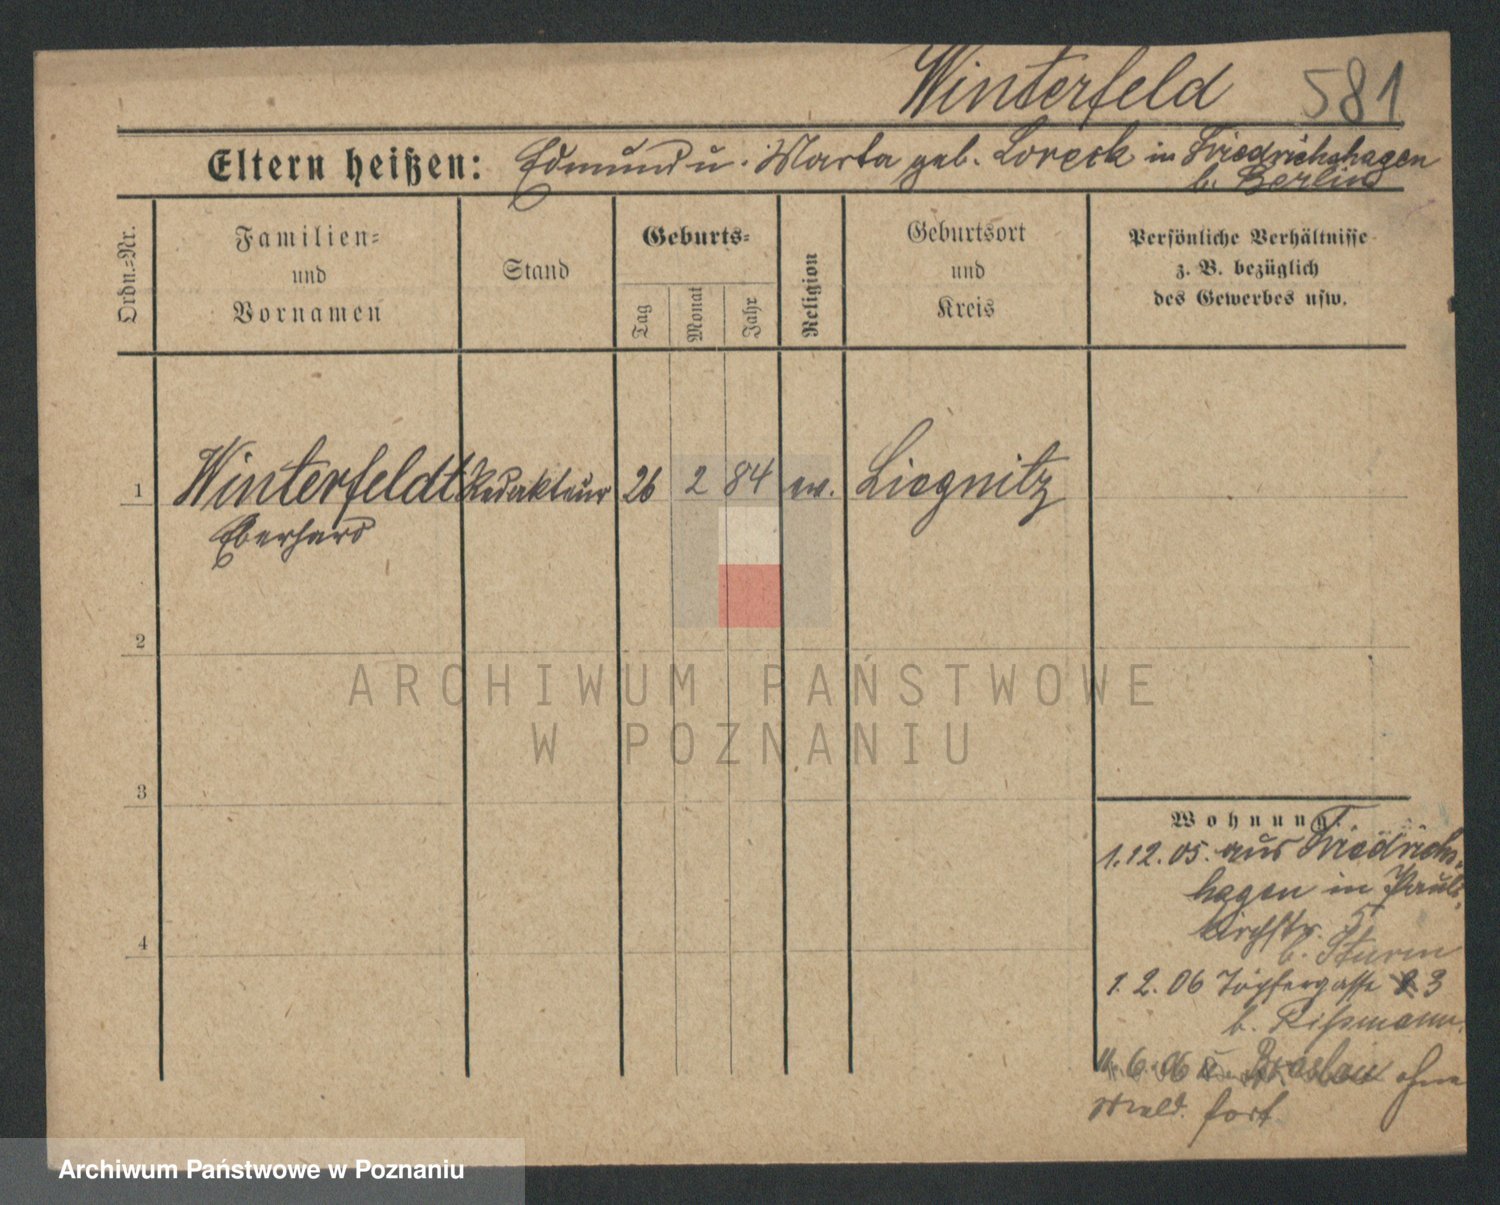 Winterfeld 581
Eltern heißen: Edmund u. Marta geb. Loreck in Friedrichshagen
b. Berlin
Ordn.-Nr.
Familien-
und
Vornamen
Stand
Geburts-
Tag
Monat
Jahr
Religion
Geburtsort
und
Kreis
Persönliche Verhältnisse
z. B. bezüglich
des Gewerbes usw.
1 Winterfeldt Redakteur 26 2 84 ev. Liegnitz
Eberhard
2
ARCHIWUM PAŃSTWOWE
W POZNANIU
3
4
Wohnung.
1.12.05. aus Friedrichs-
hagen in Pauli-
kirchstr. 5
b. Sturm
1. 2. 06 Töpfergasse 3
b. Rißmann
6. 06 Breslau ohne
Meld. fort
Archiwum Państwowe w Poznaniu